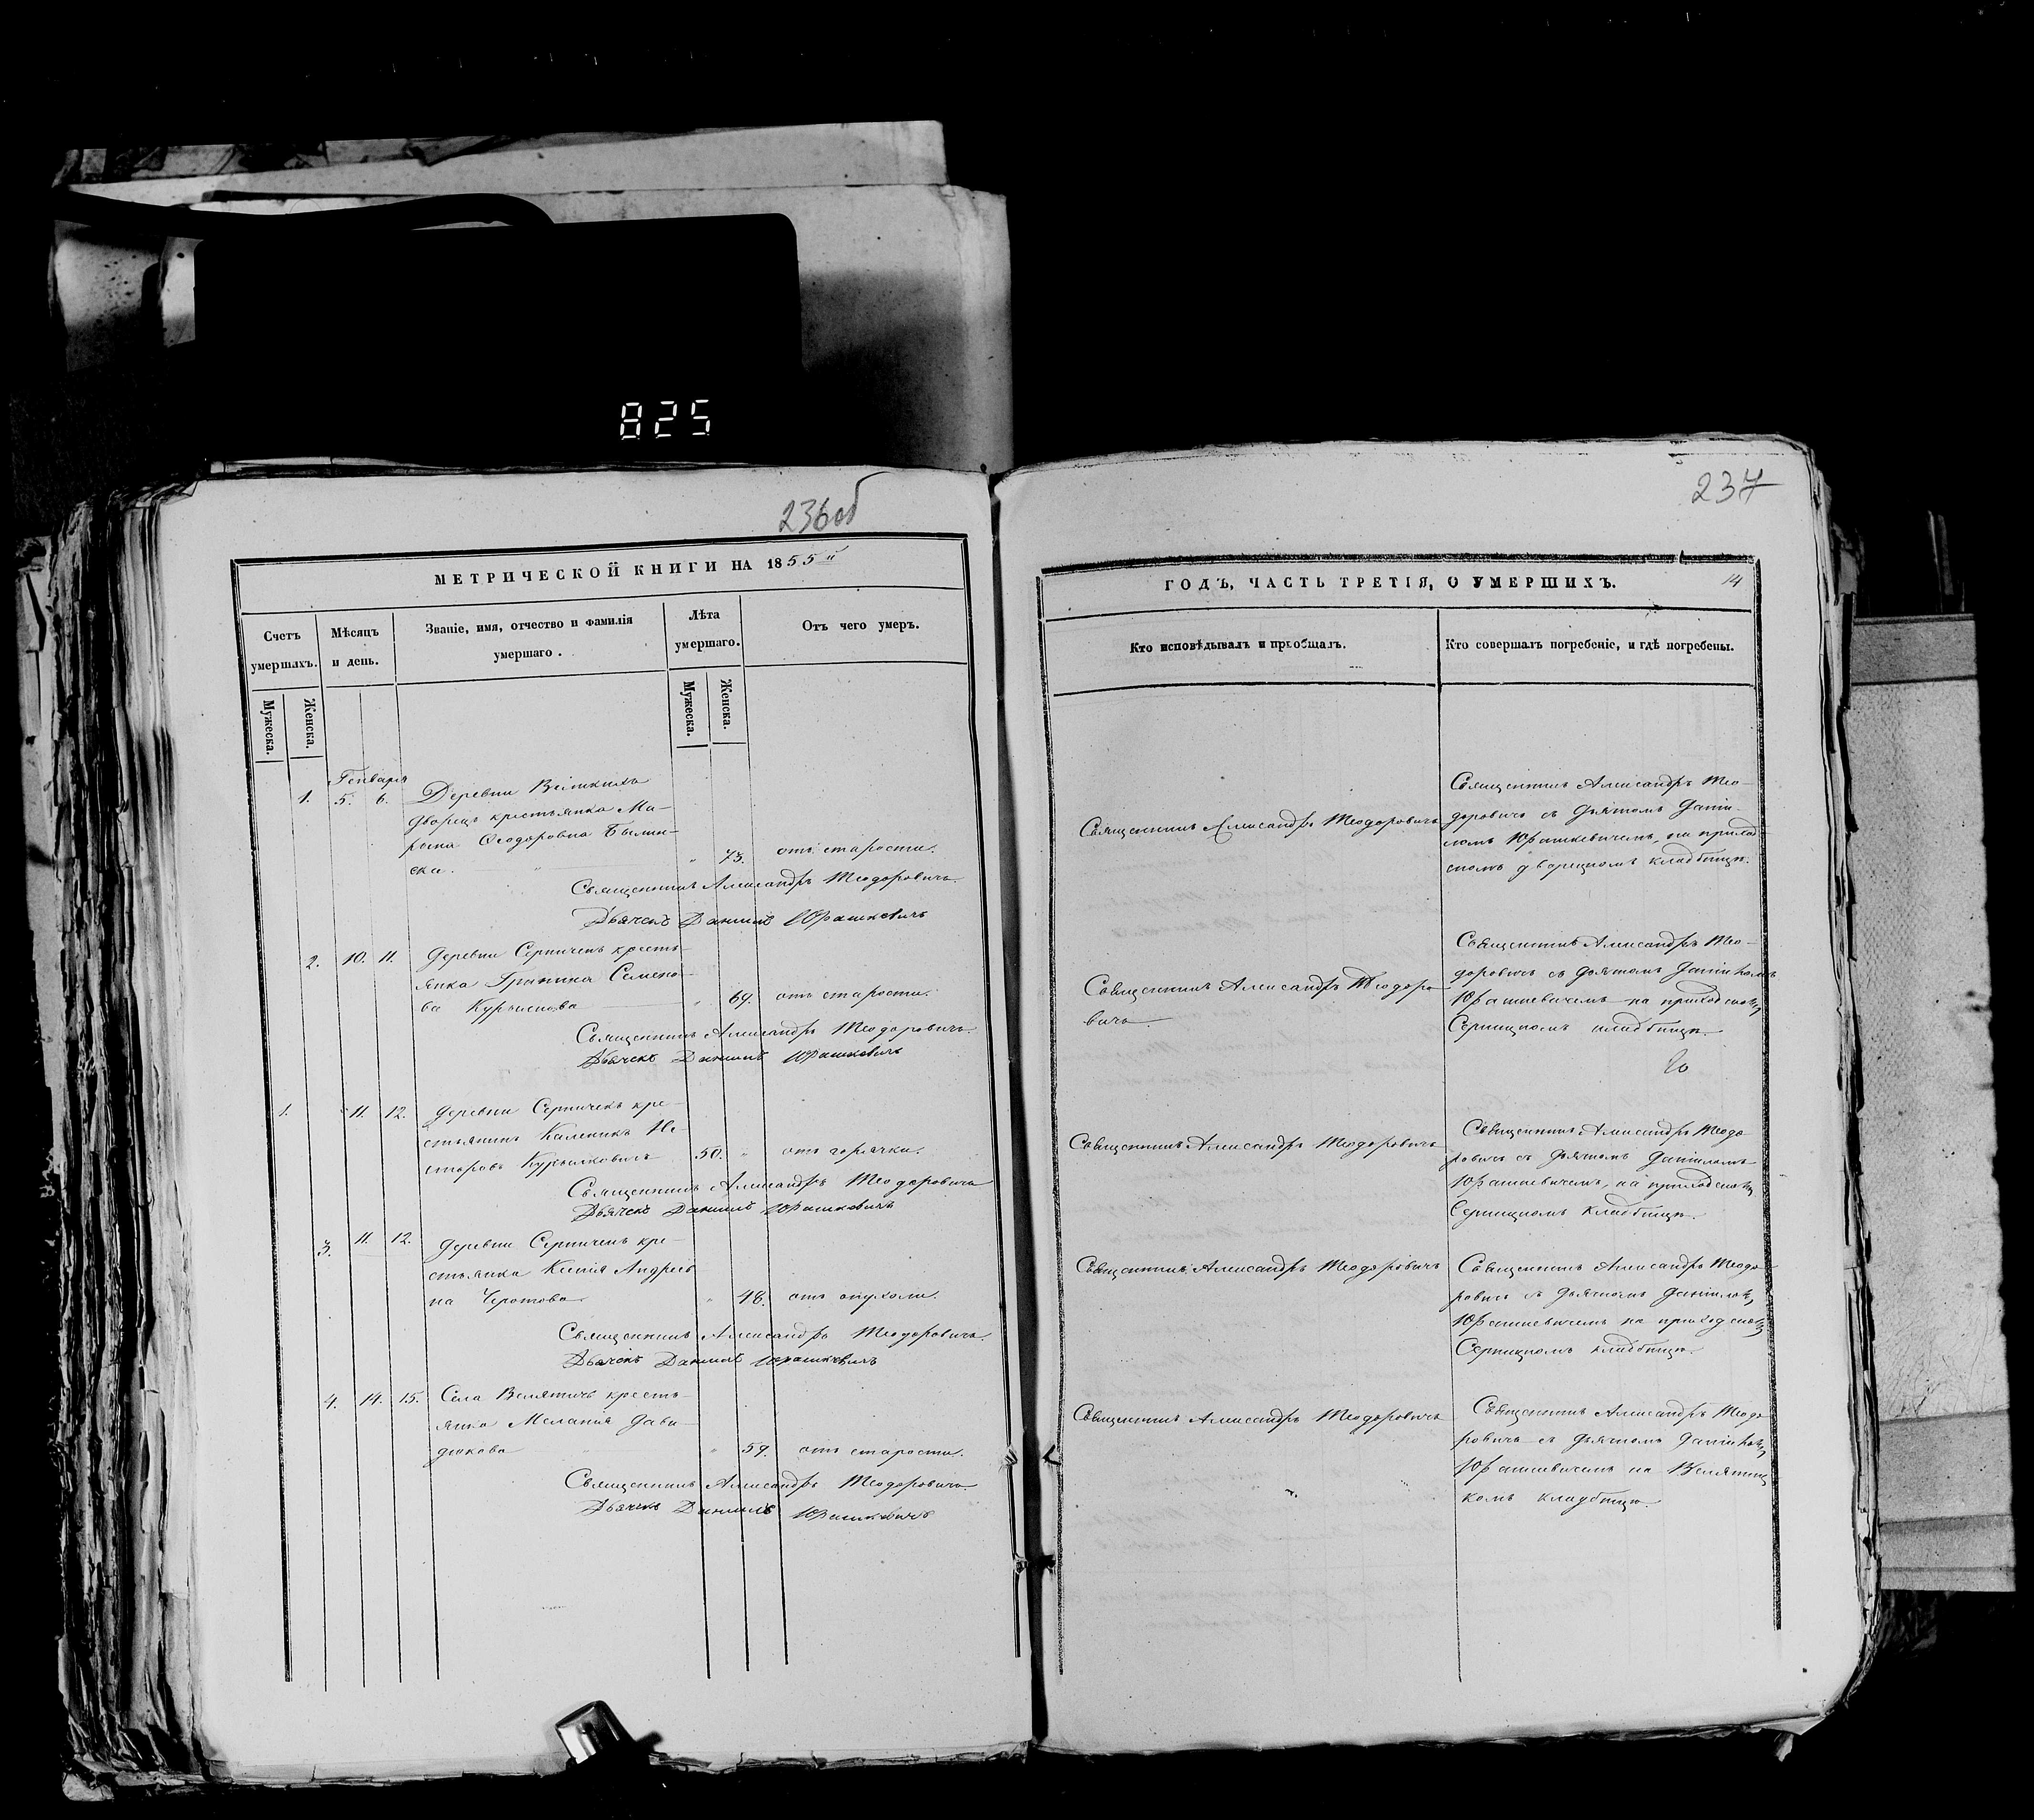 825
236об
МЕТРИЧЕСКОЙ КНИГИ НА 1855й
Счетъ умершихъ.
Мѣсяцъ и день.
Званіе, имя, отчество и фамилія умершаго.
Лѣта умершаго.
Отъ чего умеръ.
Мужеска.
Женска.
Мужеска.
Женска.
Генваря
1. 5. 6. Деревни Великихъ
Дворецъ крестьянка Ма-
рына Ѳеодоровна Былин-
ска. " 73. отъ старости.
Священникъ Александръ Теодоровичь.
Дьячекъ Даниилъ Юрашкевичъ
2. 10. 11. Деревни Серничекъ кресть-
янка Семено-
ва " 69. отъ старости.
Священникъ Александръ Теодоровичь.
Дьячекъ Даниилъ Юрашкевичъ
1. 11. 12. Деревни Серничекъ кре-
стьянинъ Каленикъ Не-
сторовъ 50. " отъ горячки.
Священникъ Александръ Теодоровичь
Дьячекъ Даниилъ Юрашкевичъ
3. 11. 12. Деревни Серничекъ кре-
стьянка Ксенія Андреев
на " 48. отъ опухоли.
Священникъ Александръ Теодоровичь.
Дьячекъ Даниилъ Юрашкевичъ
4. 14. 15. Села Велятичь кресть-
янка Меланія Дави-
дюкова " 59. отъ старости.
Священникъ Александръ Теодоровичь.
Дьячекъ Даниилъ Юрашкевичъ
237
ГОДЪ, ЧАСТЬ ТРЕТІЯ, О УМЕРШИХЪ.
14
Кто исповѣдывалъ и пріобщалъ.
Кто совершалъ погребеніе, и гдѣ погребены.
Священникъ Александръ Теодоровичь
Священникъ Александръ Тео-
доровичь съ дьячкомъ Даніи-
ломъ Юрашкевичемъ, на приход
скомъ дворецкомъ кладбищѣ.
Священникъ Александръ Теодоро-
вичь.
Священникъ Александръ Тео-
доровичь съ дьячкомъ Даніиломъ
Юрашкевичемъ на приходскомъ
Серницкомъ кладбищѣ.
Священникъ Александръ Теодоровичь
Священникъ Александръ Теодо
ровичь съ дьячкомъ Даніиломъ
Юрашкевичемъ, на приходскомъ
Серницкомъ кладбищѣ.
Священникъ Александръ Теодоровичь
Священникъ Александръ Теодо
ровичь съ дьячкомъ Даніиломъ
Юрашкевичемъ на приходскомъ
Серницкомъ кладбищѣ.
Священникъ Александръ Теодоровичь
Священникъ Александръ Теодо
ровичь съ дьячкомъ Даніиломъ
Юрашкевичемъ на Велятиц
комъ кладбищѣ.